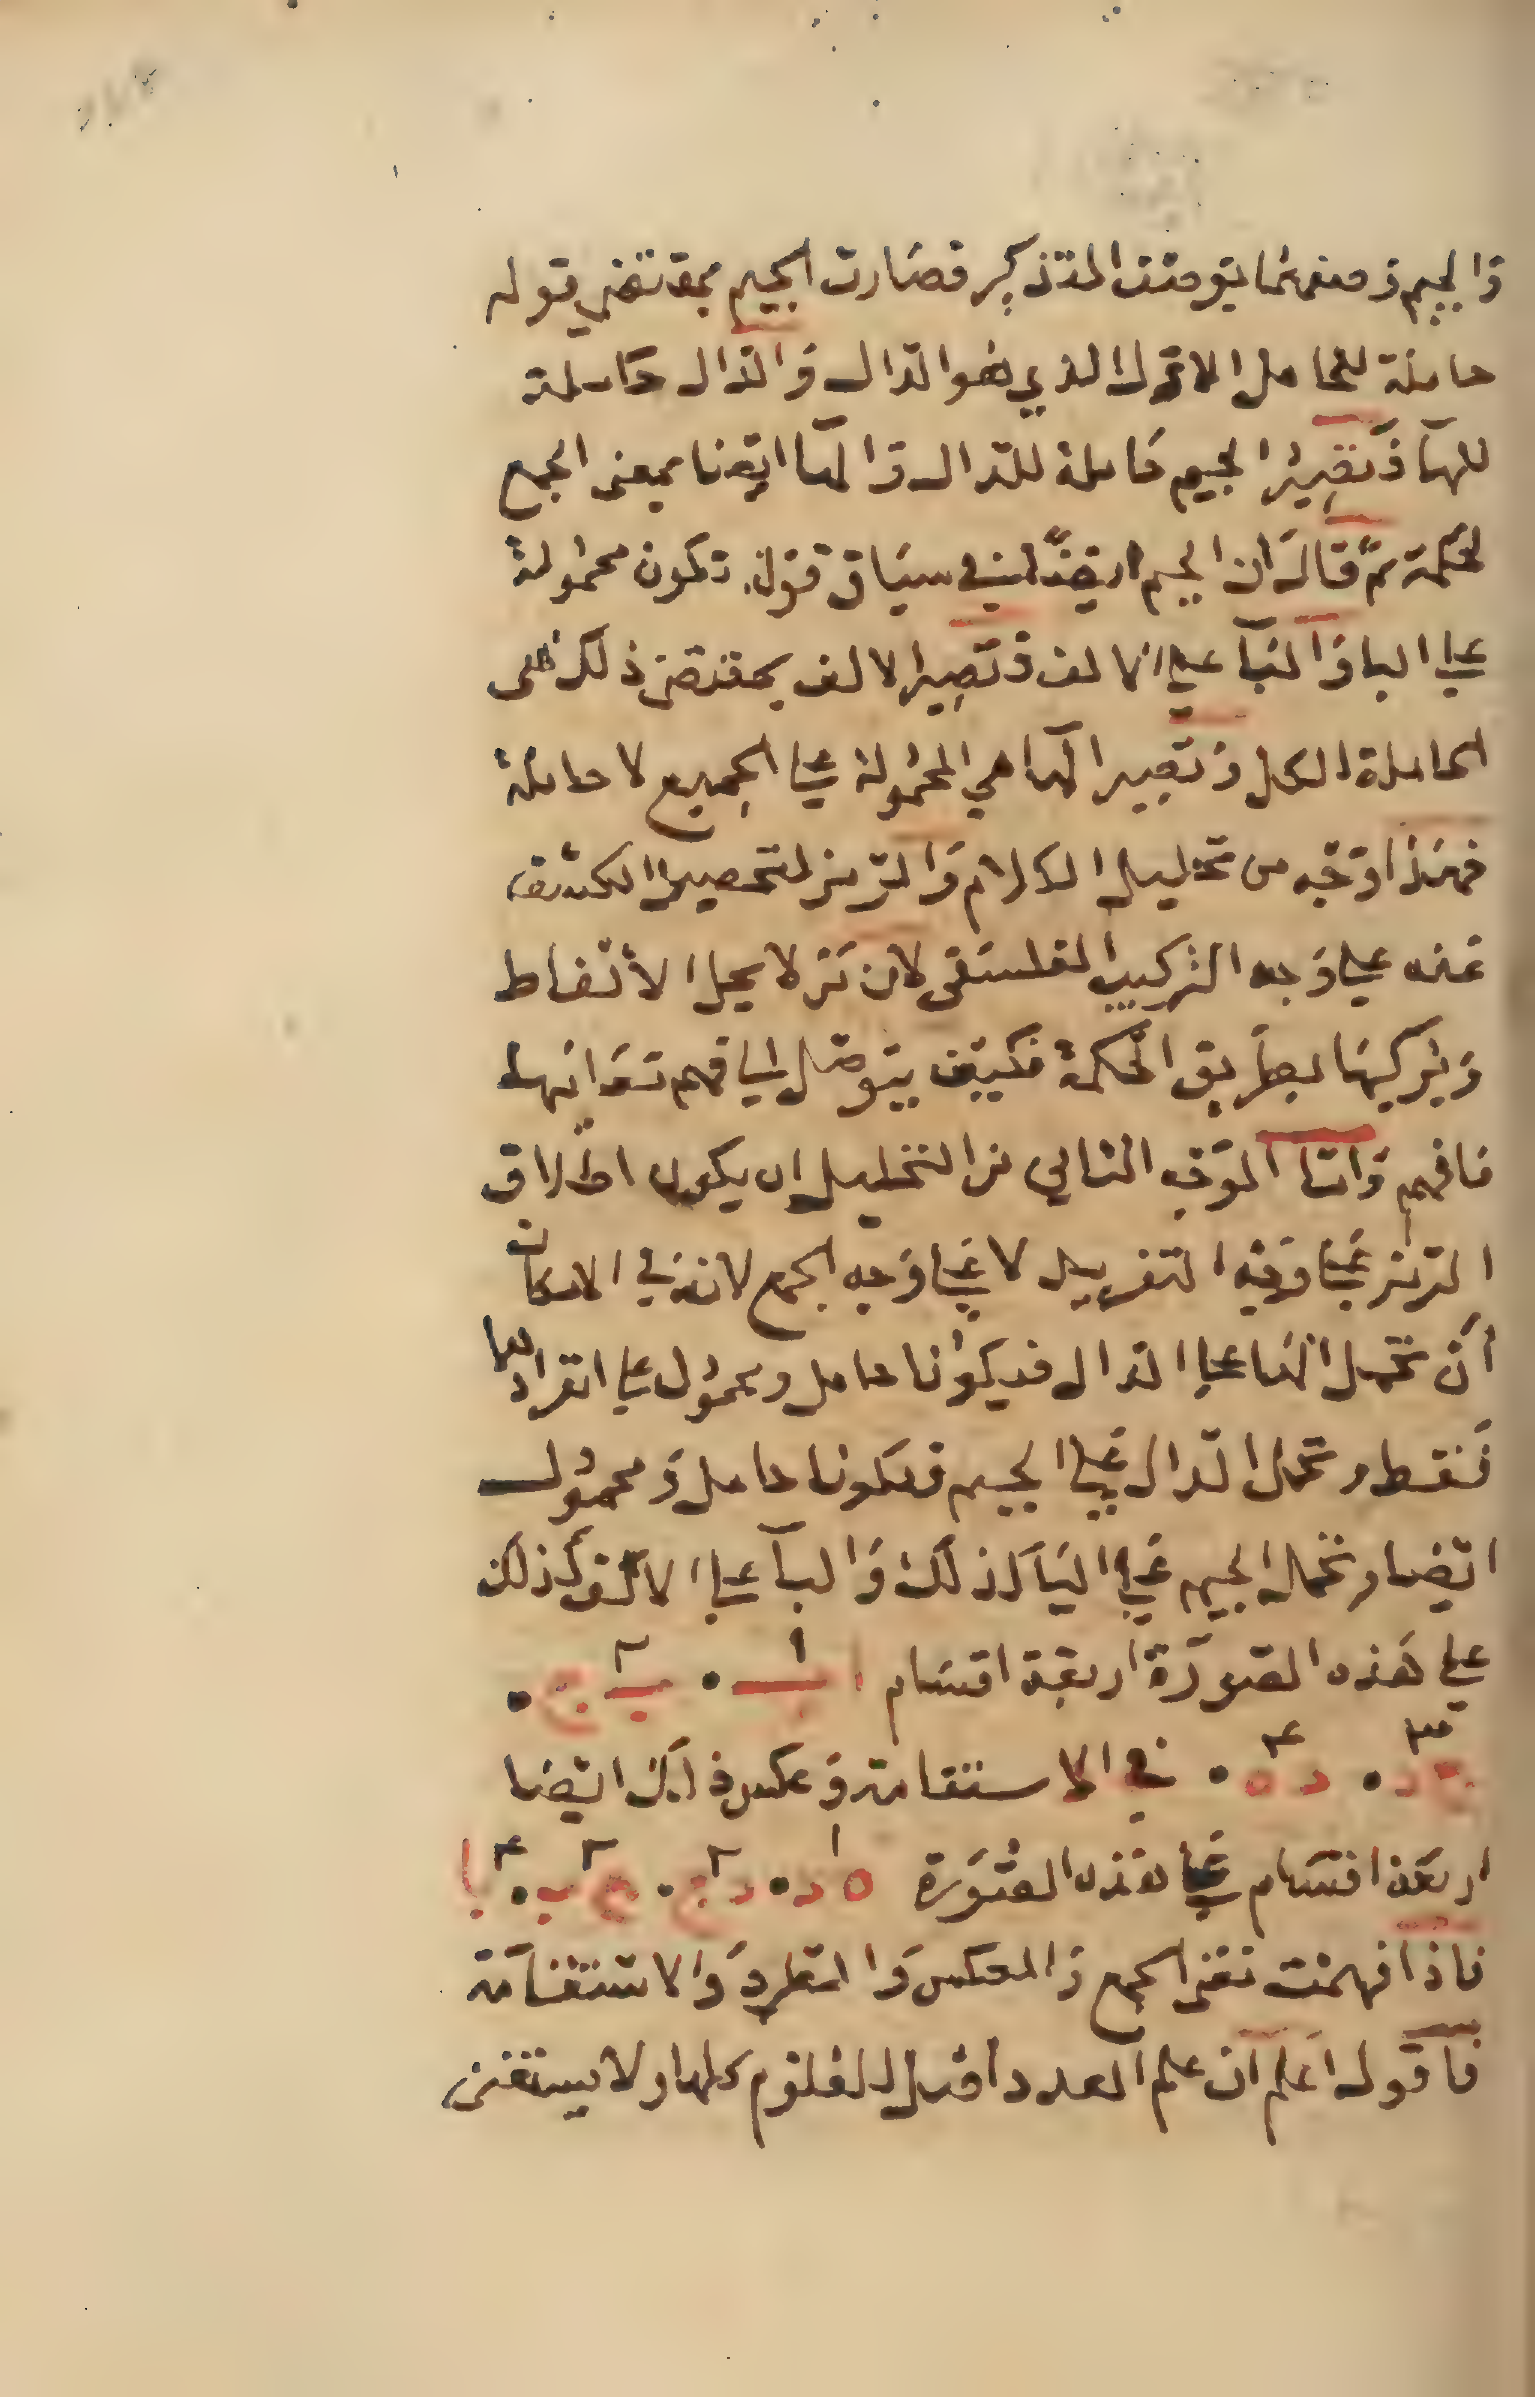 والجيم وصفهما بوصف المتذكر فصارت الجيم بمقتضى قوله
حاملة للحامل الاول الذي هو الدال والدال حاملة
للها وتصير الجيم حاملة للدال والها ايضا بمعنى الجمع
لحكمة ثم قال ان الجيم ايضا في سياق قوله تكون محمولة
على البا والبا على الالف وتصير الالف بمقتضى ذلك هى
الحاملة الكل وتصير الها هي المحمولة على الجميع لا حاملة
فهذا وجه من تحليل الكلام والرمز لتحصيل الكشف
عنه على وجه التركيب الفلسفى لان من لا يحل الالفاظ
ويركبها بطريق الحكمة فكيف يتوصل الى فهم معانيها
فافهم واما الوجه الثاني من التحليل ان يكون اطلاق
الرمز على وجه التفصيل لا على وجه الجمع لانه في الامكان
أن تحمل الها على الدال فيكونا حامل ومحمول على انفرادهما
فقط وتحمل الدال على الجيم فيكونا حامل ومحمول
ايضا وتحمل الجيم على البا كذلك والبا على الالف كذلك
على هذه الصورة اربعة اقسام ا ب ١ • ب ج ٢ •
ج د ٣ • د ه ٤ • في الاستقامة وعكس ذلك ايضا
اربعة اقسام على هذه الصورة ه د ١ • د ج ٢ • ج ب ٣ • ب ا ٤
فاذا فهمت معنى الجمع والعكس والطرد والاستقامة
فاقول اعلم ان علم العدد اصل للعلوم كلها ولا يستغنى